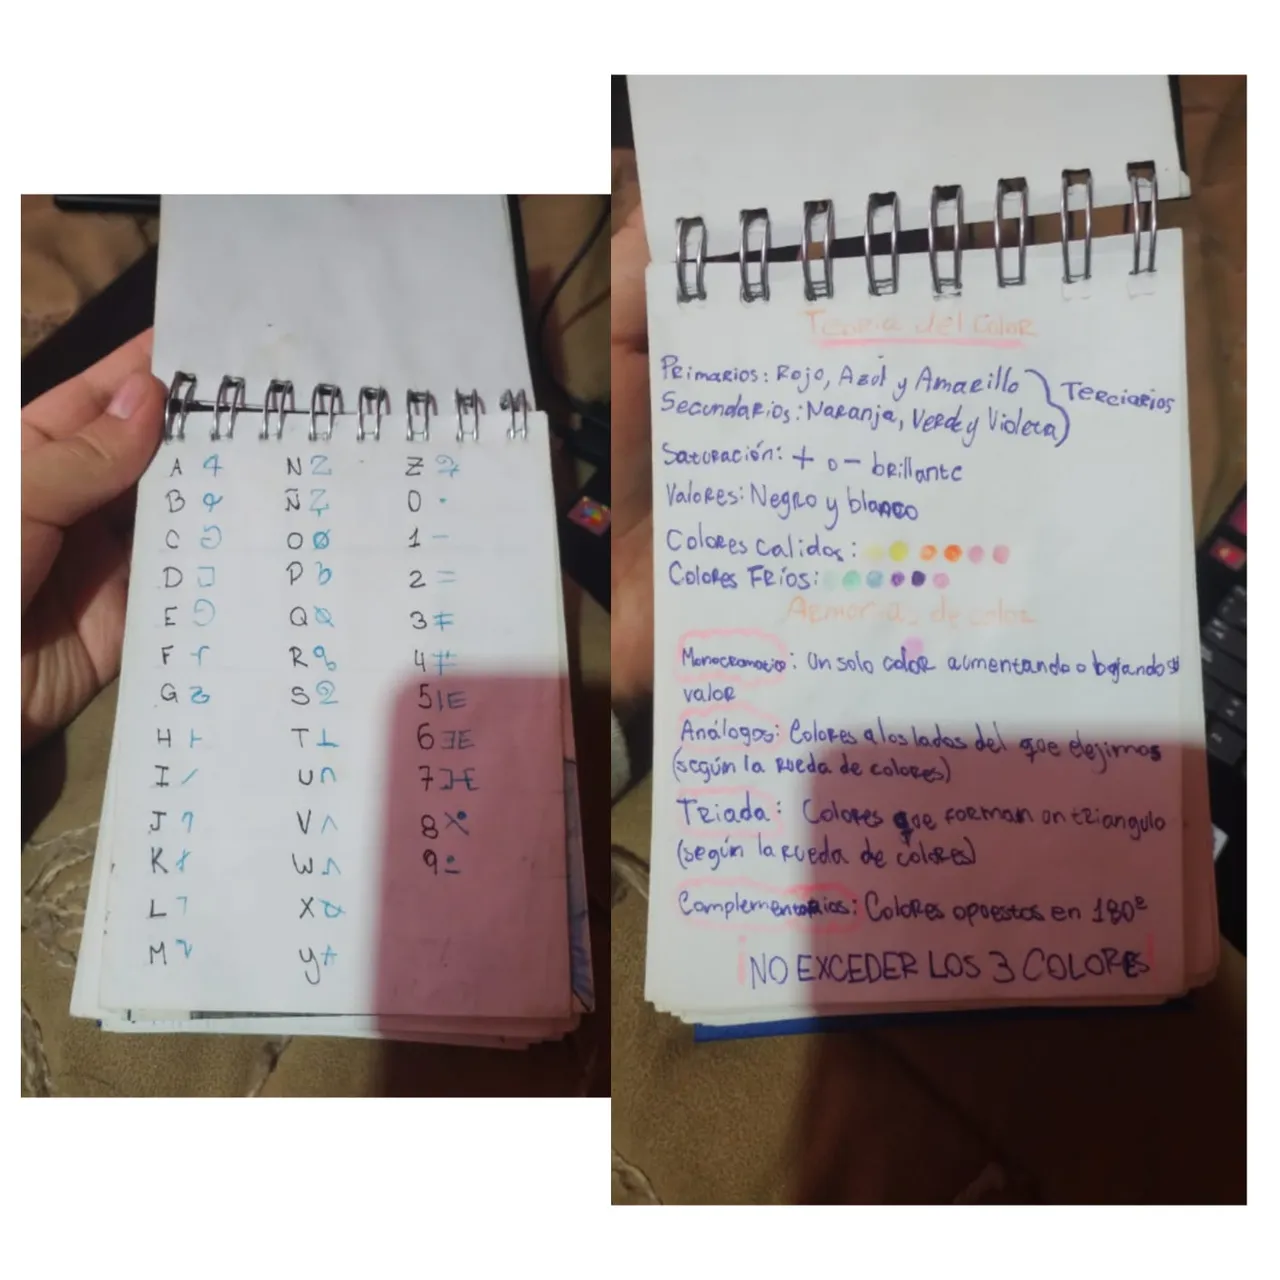 A
B
C
D
E
F
G
H
I
J
K
L
M
N
Ñ
O
P
Q
R
S
T
U
V
W
X
y
Z
0
1
2
3
4
5
6
7
8
9
Teoria del Color
Primarios: Rojo, Azul y Amarillo
Secundarios: Naranja, Verde y Violeta
Terciarios
Saturación: + o - brillante
Valores: Negro y blanco
Colores Calidos:
Colores Fríos:
Armonias de color
Monocromatico: Un solo color aumentando o bajando su
valor
Análogos: Colores a los lados del que elejimos
(según la rueda de colores)
Triada: Colores que forman un triangulo
(según la rueda de colores)
Complementarios: Colores opuestos en 180º
¡NO EXCEDER LOS 3 COLORES!